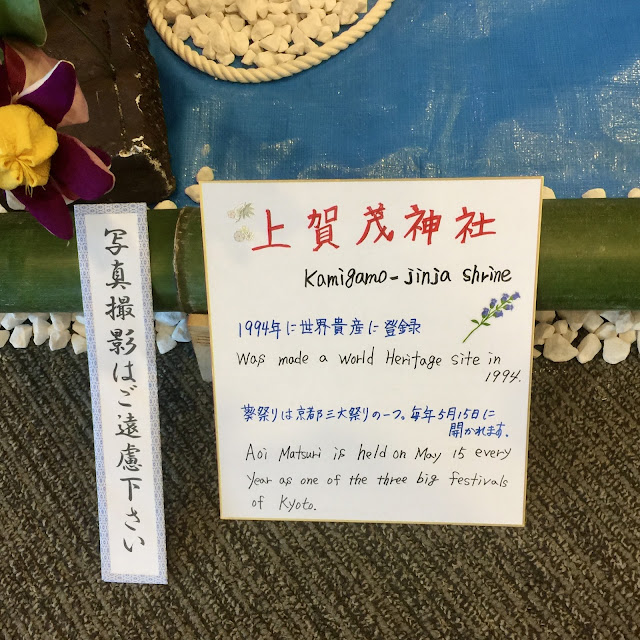 写真撮影はご遠慮下さい
上賀茂神社
Kamigamo-jinja shrine
1994年に世界貴産に登録
Was made a World Heritage site in
1994.
葵祭りは京都三大祭りの一つ。毎年5月15日に
開かれます。
Aoi Matsuri is held on May 15 every
year as one of the three big festivals
of Kyoto.